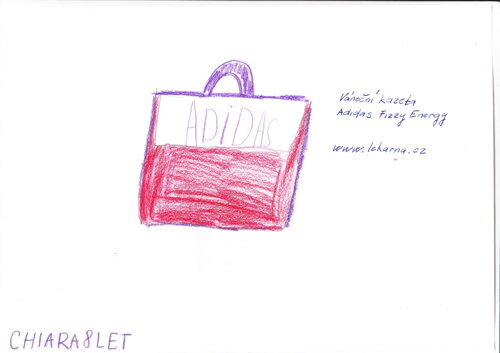 ADiDAS
Vánoční kazeta
Adidas Fizzy Energy
www.lekarna.cz
CHIARA8LET